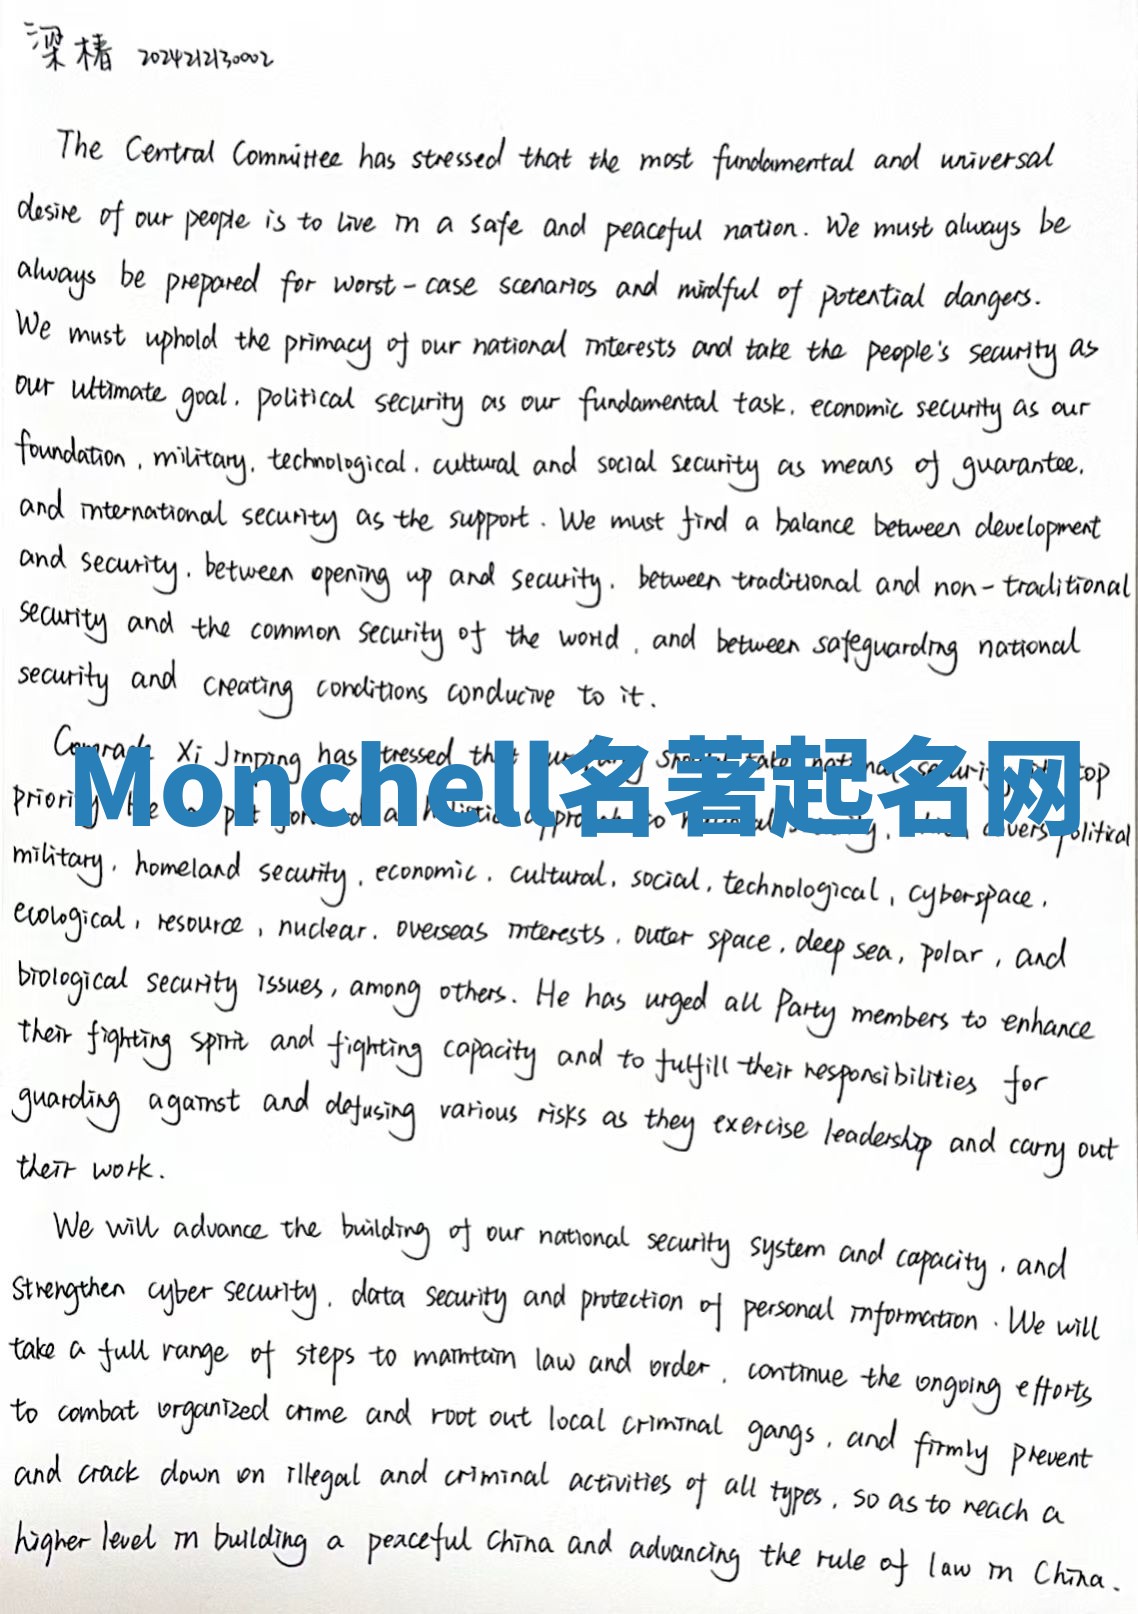 梁椿 2024212130002
The Central Committee has stressed that the most fundamental and universal
desire of our people is to live in a safe and peaceful nation. We must always be
always be prepared for worst-case scenarios and mindful of potential dangers.
We must uphold the primacy of our national interests and take the people's security as
our ultimate goal, political security as our fundamental task, economic security as our
foundation, military, technological, cultural and social security as means of guarantee,
and international security as the support. We must find a balance between development
and security, between opening up and security, between traditional and non-traditional
security and the common security of the world, and between safeguarding national
security and creating conditions conducive to it.
Comrade Xi Jinping has stressed that should take national security top
Monchell名著起名网
priority. He put a holistic approach to national security, covers political
military, homeland security, economic, cultural, social, technological, cyberspace,
ecological, resource, nuclear, overseas interests, outer space, deep sea, polar, and
biological security issues, among others. He has urged all Party members to enhance
their fighting spirit and fighting capacity and to fulfill their responsibilities for
guarding against and defusing various risks as they exercise leadership and carry out
their work.
We will advance the building of our national security system and capacity, and
strengthen cyber security, data security and protection of personal information. We will
take a full range of steps to maintain law and order, continue the ongoing efforts
to combat organized crime and root out local criminal gangs, and firmly prevent
and crack down on illegal and criminal activities of all types, so as to reach a
higher level in building a peaceful China and advancing the rule of law in China.